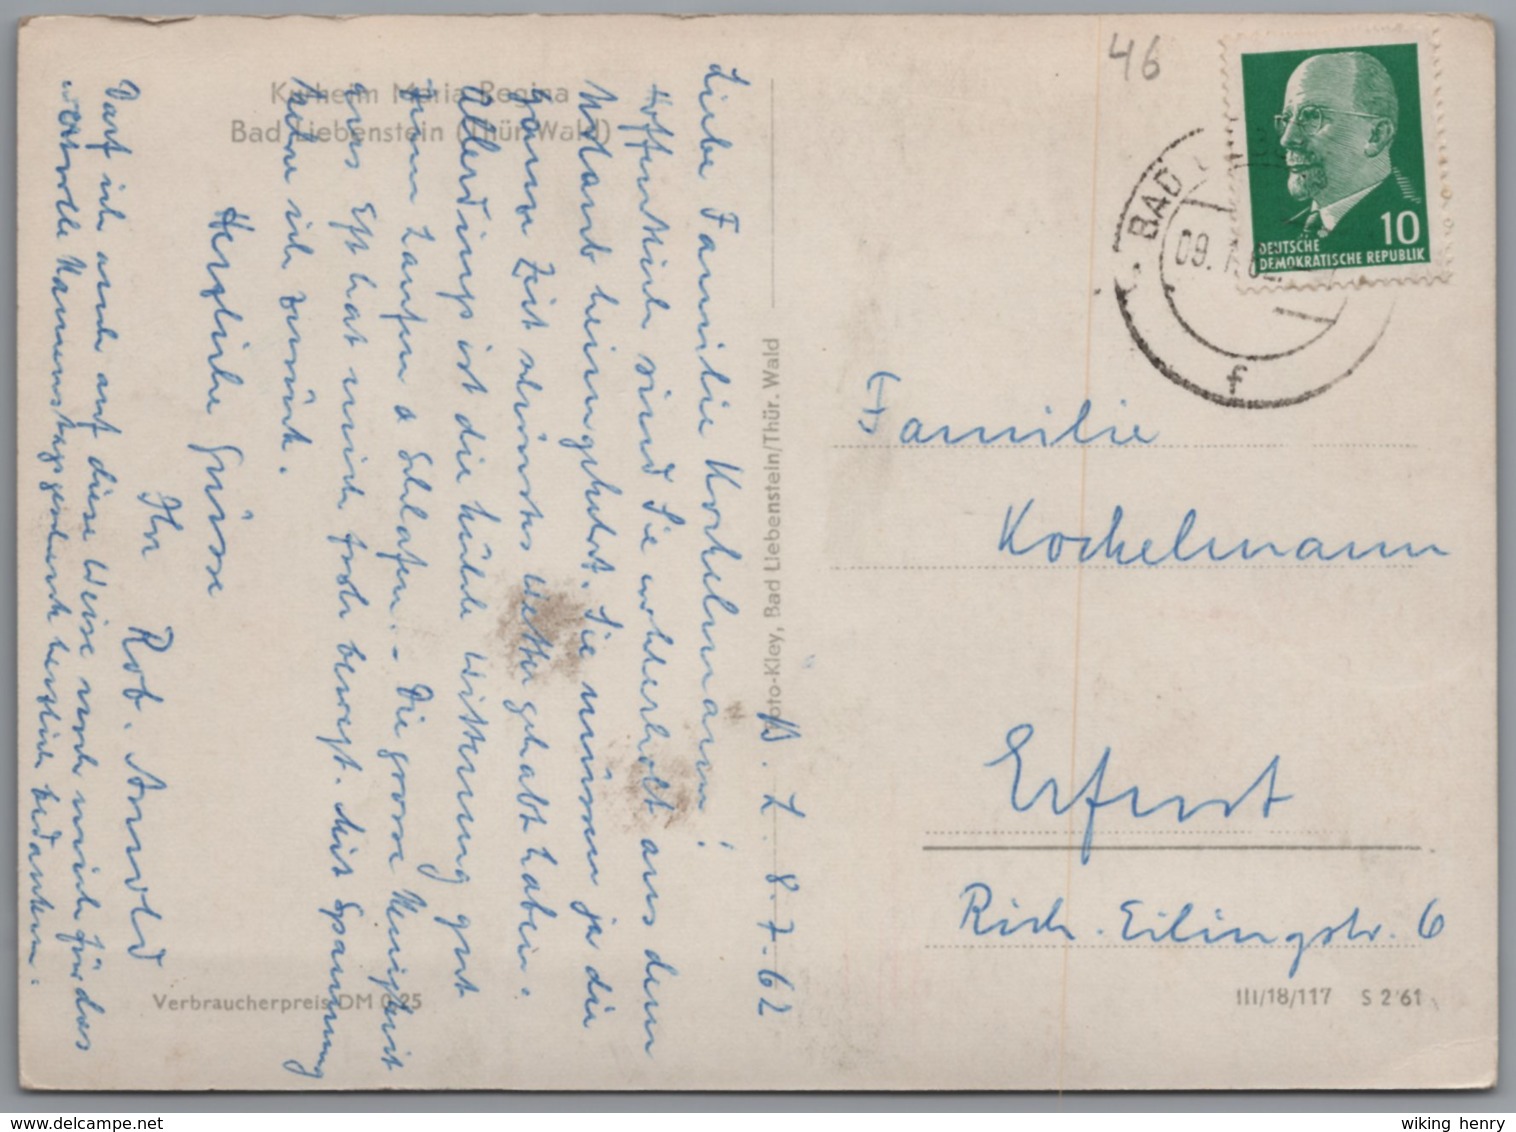 B. L. 8.7.62
Liebe Familie Kockelmann!
Hoffentlich sind Sie wohlerholt aus dem
Urlaub heimgekehrt. Sie müssen ja die
ganze Zeit schönstes Wetter gehabt haben.
Allerdings ist die kühle Witterung gut
zum Laufen & Schlafen. – Die grosse Neuigkeit
aus Eft hat mich froh bewegt. Mit Spannung
kehre ich zurück.
Herzliche Grüsse
Ihr Rob. Arnold
Darf ich auch auf diese Weise noch mich für das
wertvolle Namenstagsgeschenk herzlich bedanken.
Kurheim Maria Regina
Bad Liebenstein (Thür. Wald)
Verbraucherpreis DM 0,25
Foto-Kley, Bad Liebenstein/Thür. Wald
46
DEUTSCHE
DEMOKRATISCHE REPUBLIK
10
BAD
09.
f
Familie
Kockelmann
Erfurt
Rich. Eilingstr. 6
III/18/117 S 2 61
wiking henry